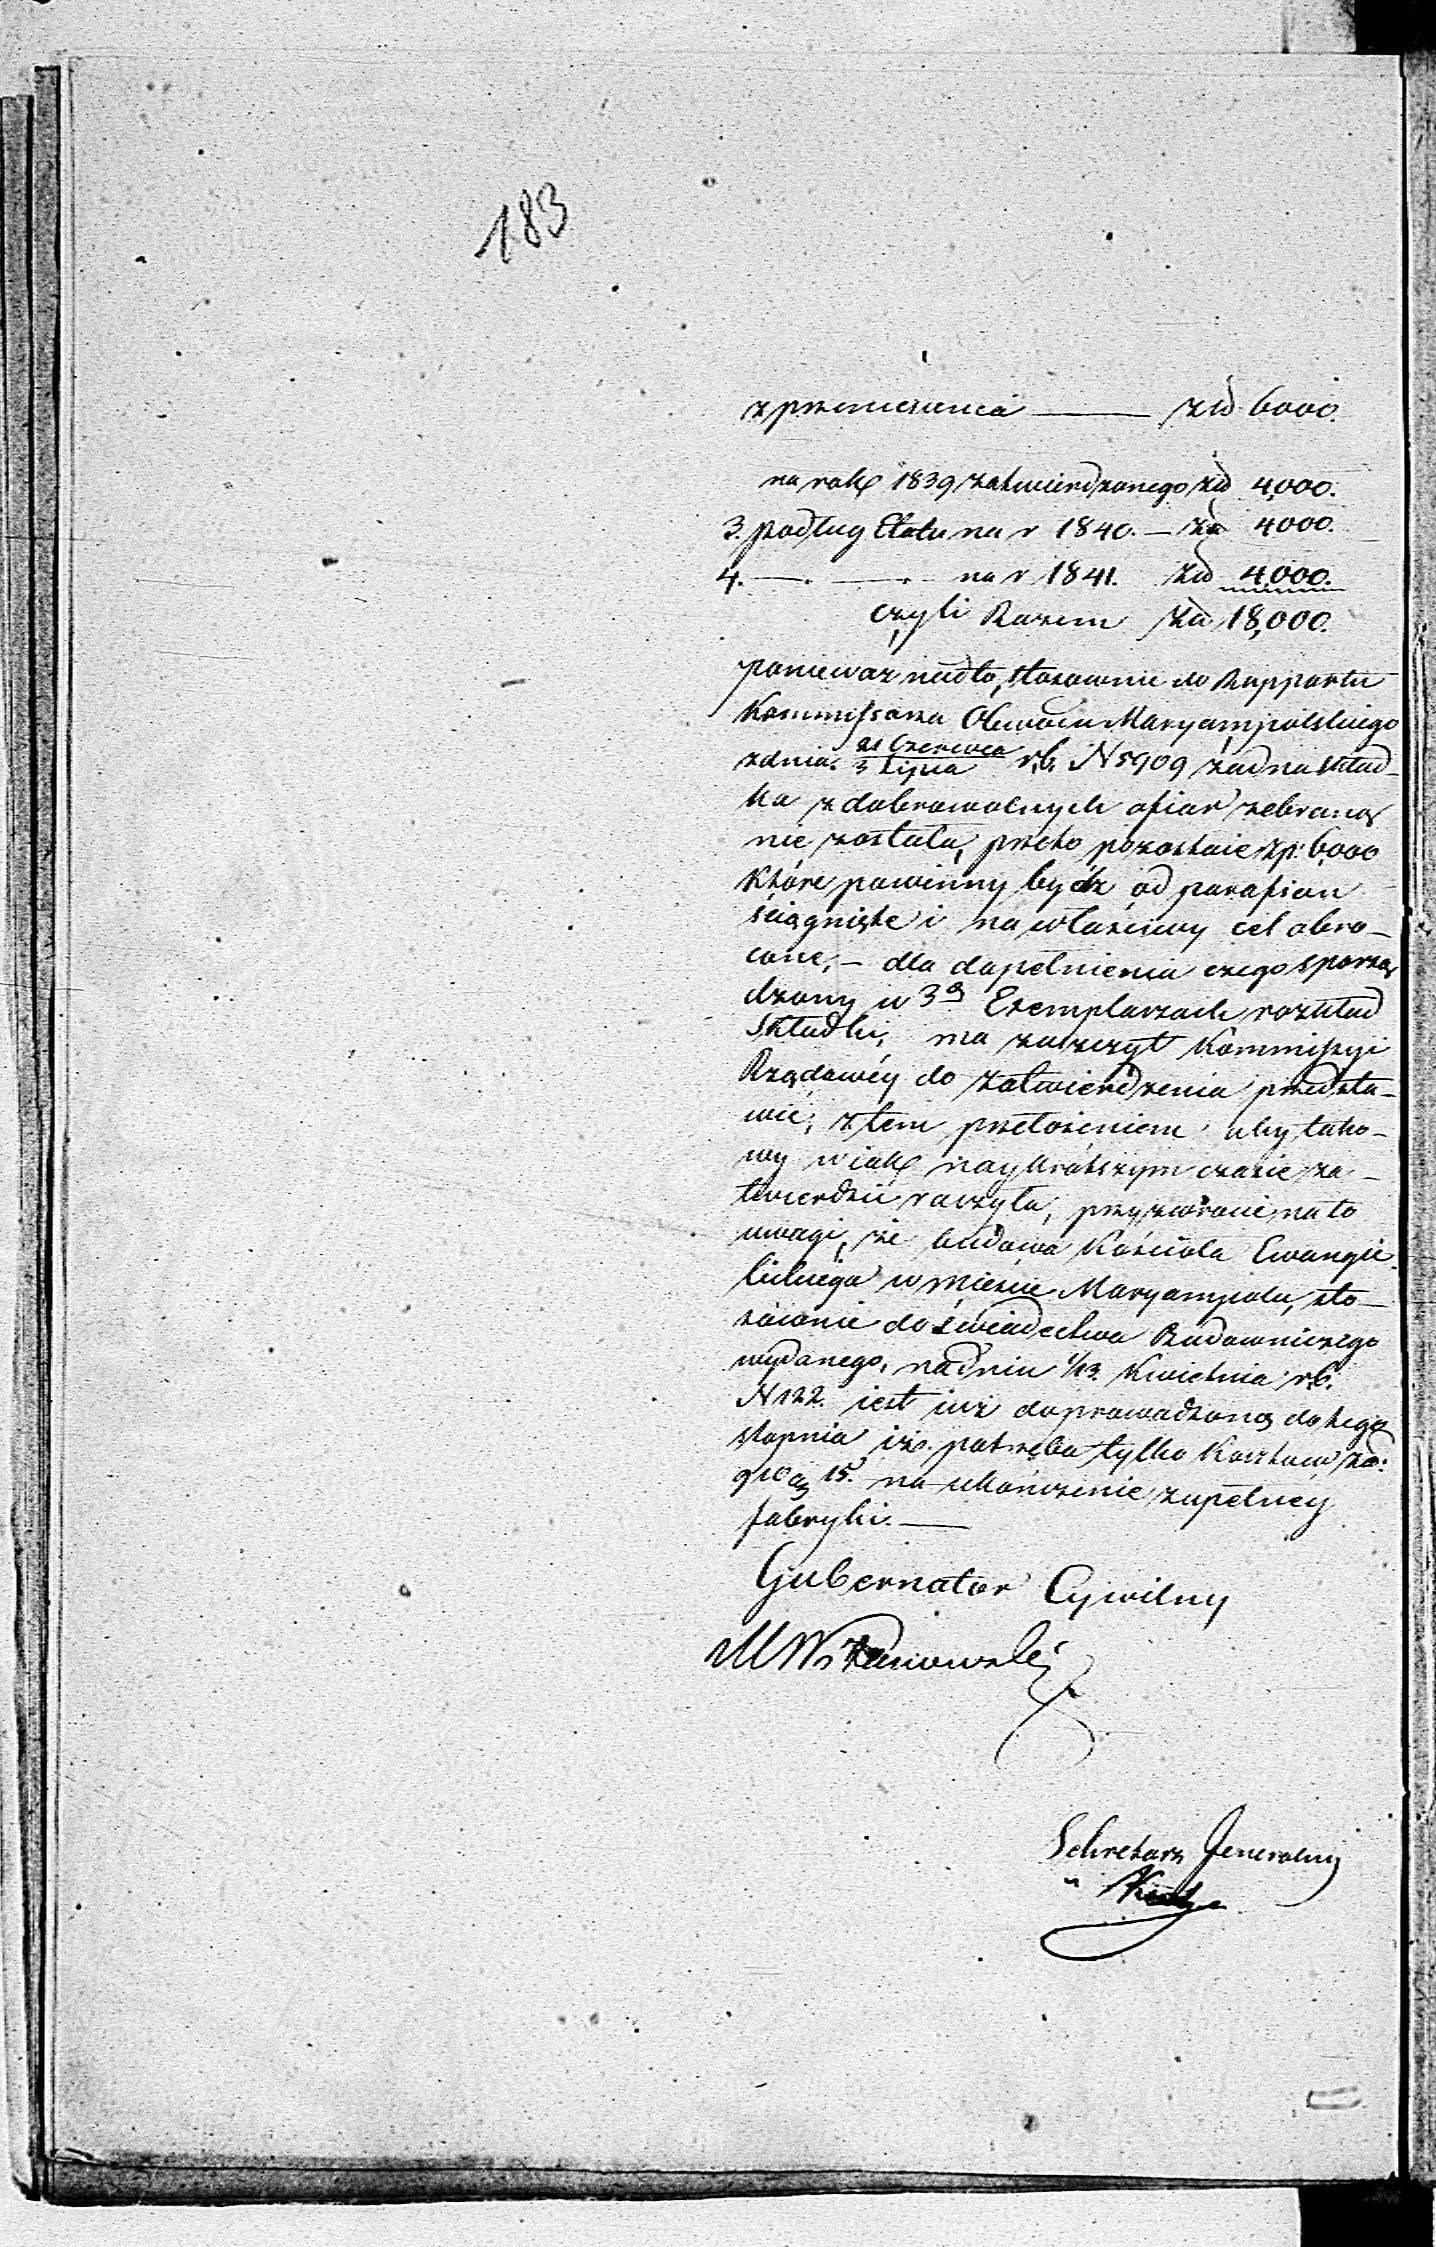 183
z przeniesienia — złp 6000.
na rok 1839 zatwierdzonego złp 4,000.
3. podług Etatu na r 1840. — złp 4000.
4. — . — . — na r 1841. złp 4,000.
czyli Razem złp 18,000.
ponieważ nadto, stosownie do Rapportu
Kommissarza Obwodu Maryampolskiego
z dnia 21 Czerwca / 3 Lipca r.b. N 5909 żadna skład-
ka z dobrowolnych ofiar zebraną
nie została, przeto pozostaie złp. 6,000
które powinny bydź od parafian
ściągnięte i na właściwy cel obro-
cone, — dla dopełnienia czego sporzą
dzony w 3ch Exemplarzach rozkład
Składki, ma zaszczyt Kommissyi
Rządowéy do zatwierdzenia przedsta-
wić, z tem przełożeniem aby tako-
wy w iak naykrótszym czasie za-
twierdzić raczyła, przyzwoicie na to
uwagi, że budowa Kościoła Ewangie-
lickiego w mieście Maryampolu, sto-
sownie do świadectwa Budowniczego
wydanego, na dniu 1/13. Kwietnia r.b.
N 122. iest iuż doprowadzoną do tego
stopnia iż potrzeba tylko Kosztów złp:
910 gr 15. na ukończenie zupełney
fabryki. —
Gubernator Cywilny
Sekretarz Jeneralny